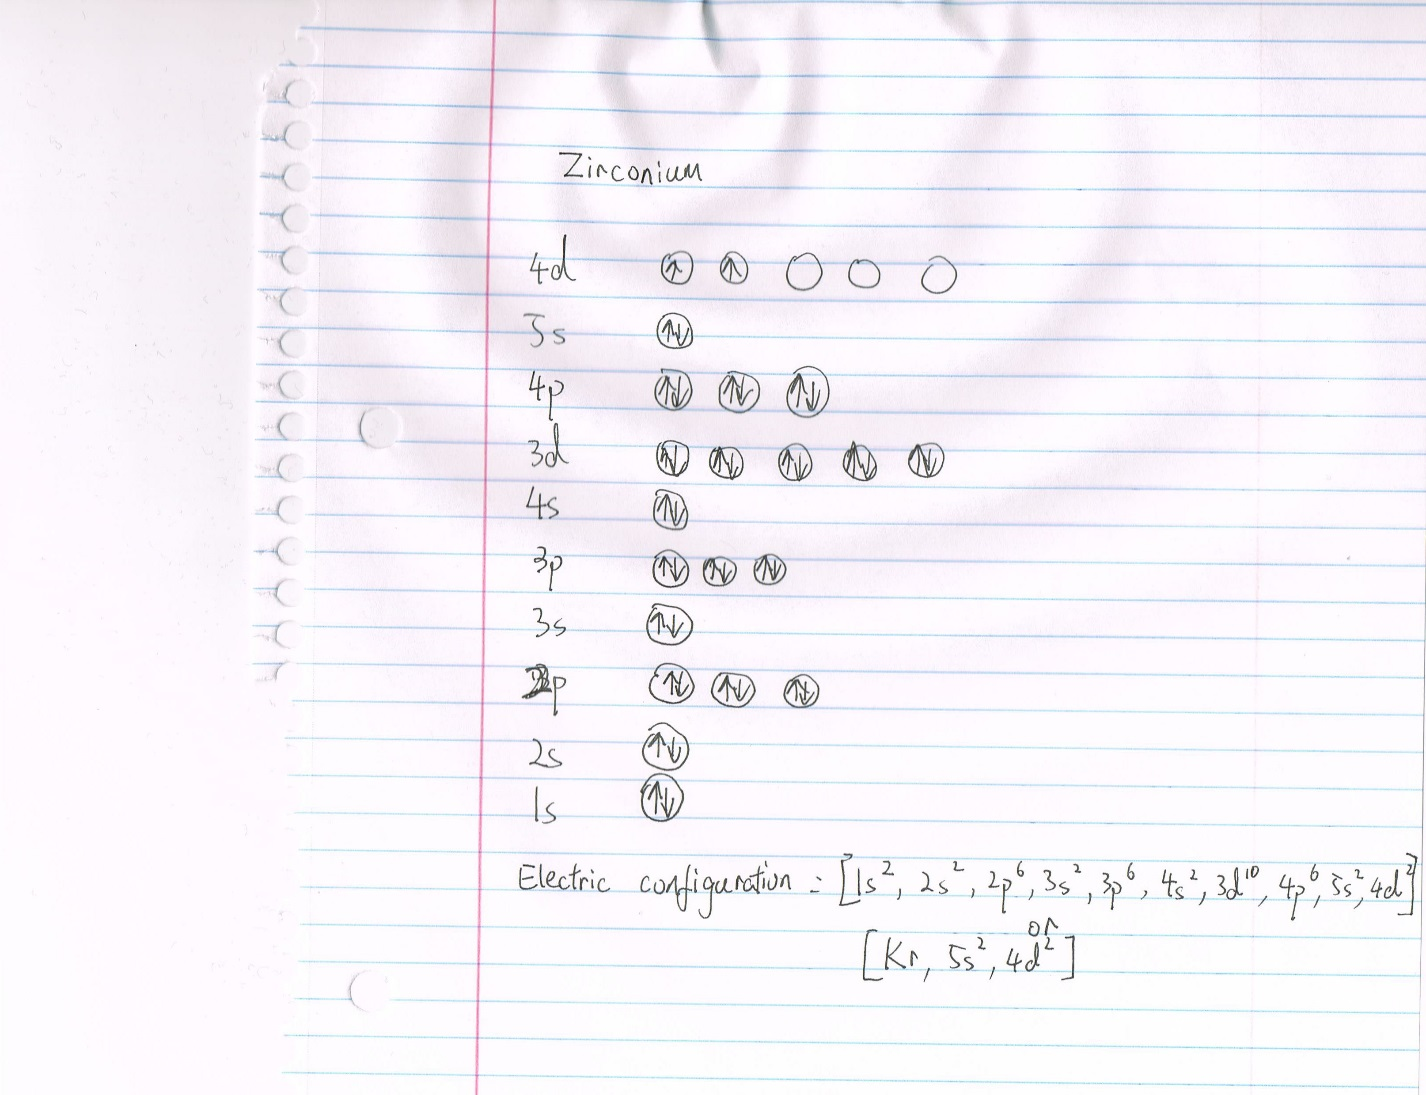 Zirconium
4d ↑ ↑
5s ↑↓
4p ↑↓ ↑↓ ↑↓
3d ↑↓ ↑↓ ↑↓ ↑↓ ↑↓
4s ↑↓
3p ↑↓ ↑↓ ↑↓
3s ↑↓
2p ↑↓ ↑↓ ↑↓
2s ↑↓
1s ↑↓
Electric configuration = [1s², 2s², 2p⁶, 3s², 3p⁶, 4s², 3d¹⁰, 4p⁶, 5s², 4d²]
or
[Kr, 5s², 4d²]